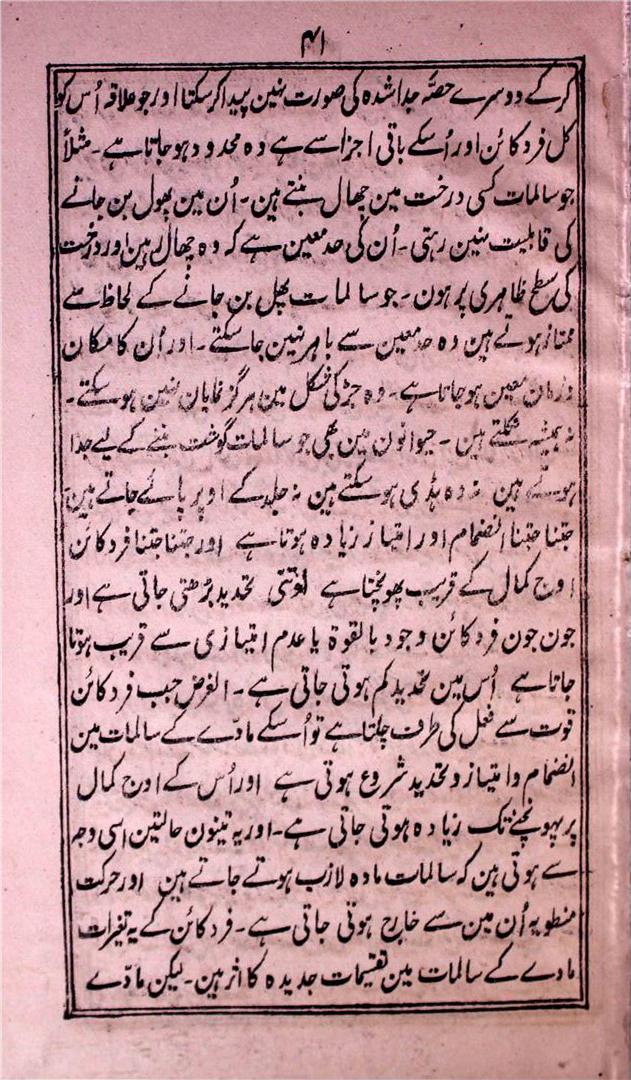 ۴۱
کرکے دوسرے حصّہ جداشدہ کی صورت نہین پیدا کرسکتا اور جو علاقہ اُس کو
کل فرد کائن اور اُسکے باقی اجزا سے ہے وہ محدود ہوجاتا ہے۔ مثلاً
جو سالمات کسی درخت مین چھال بنتے ہین۔ اُن مین پھول بن جانے
کی قابلیت نہین رہتی۔ اُن کی حد معین ہے کہ وہ چھال رہین اور درخت
کی سطح ظاہری پر ہون۔ جو سالمات پھل بن جانے کے لحاظ سے
ممتاز ہوتے ہین وہ حد معین سے باہر نہین جا سکتے۔ اور اُن کا مکان
وزمان معین ہوجاتا ہے۔ وہ جڑ کی شکل مین ہرگز نمایان نہین ہو سکتے۔
نہ ہمیشہ نکلتے ہین۔ حیوانون مین بھی جو سالمات گوشت بننے کے لیے جدا
ہوتے ہین نہ وہ ہڈی ہو سکتے ہین نہ جلد کے اوپر پائے جاتے ہین
جتنا جتنا انضمام اور امتیاز زیادہ ہوتا ہے اور جتنا جتنا فرد کائن
اوج کمال کے قریب پھونچتا ہے اوتنی تحدید بڑھتی جاتی ہے اور
جون جون فرد کائن وجود بالقوۃ یا عدم امتیازی سے قریب ہوتا
جاتا ہے اُس مین تحدید کم ہوتی جاتی ہے۔ الغرض جب فرد کائن
قوت سے فعل کی طرف چلتا ہے تو اُسکے مادّے کے سالمات مین
انضمام وامتیاز وتحدید شروع ہوتی ہے اور اُس کے اوج کمال
پر پہونچنے تک زیادہ ہوتی جاتی ہے۔ اور یہ تینون حالتین اسی وجہ
سے ہوتی ہین کہ سالمات مادہ لازب ہوتے جاتے ہین اور حرکت
منطویہ اُن مین سے خارج ہوتی جاتی ہے۔ فرد کائن کے یہ تغیرات
مادے کے سالمات مین تقسیمات جدیدہ کا اثر ہین۔ لیکن مادّے